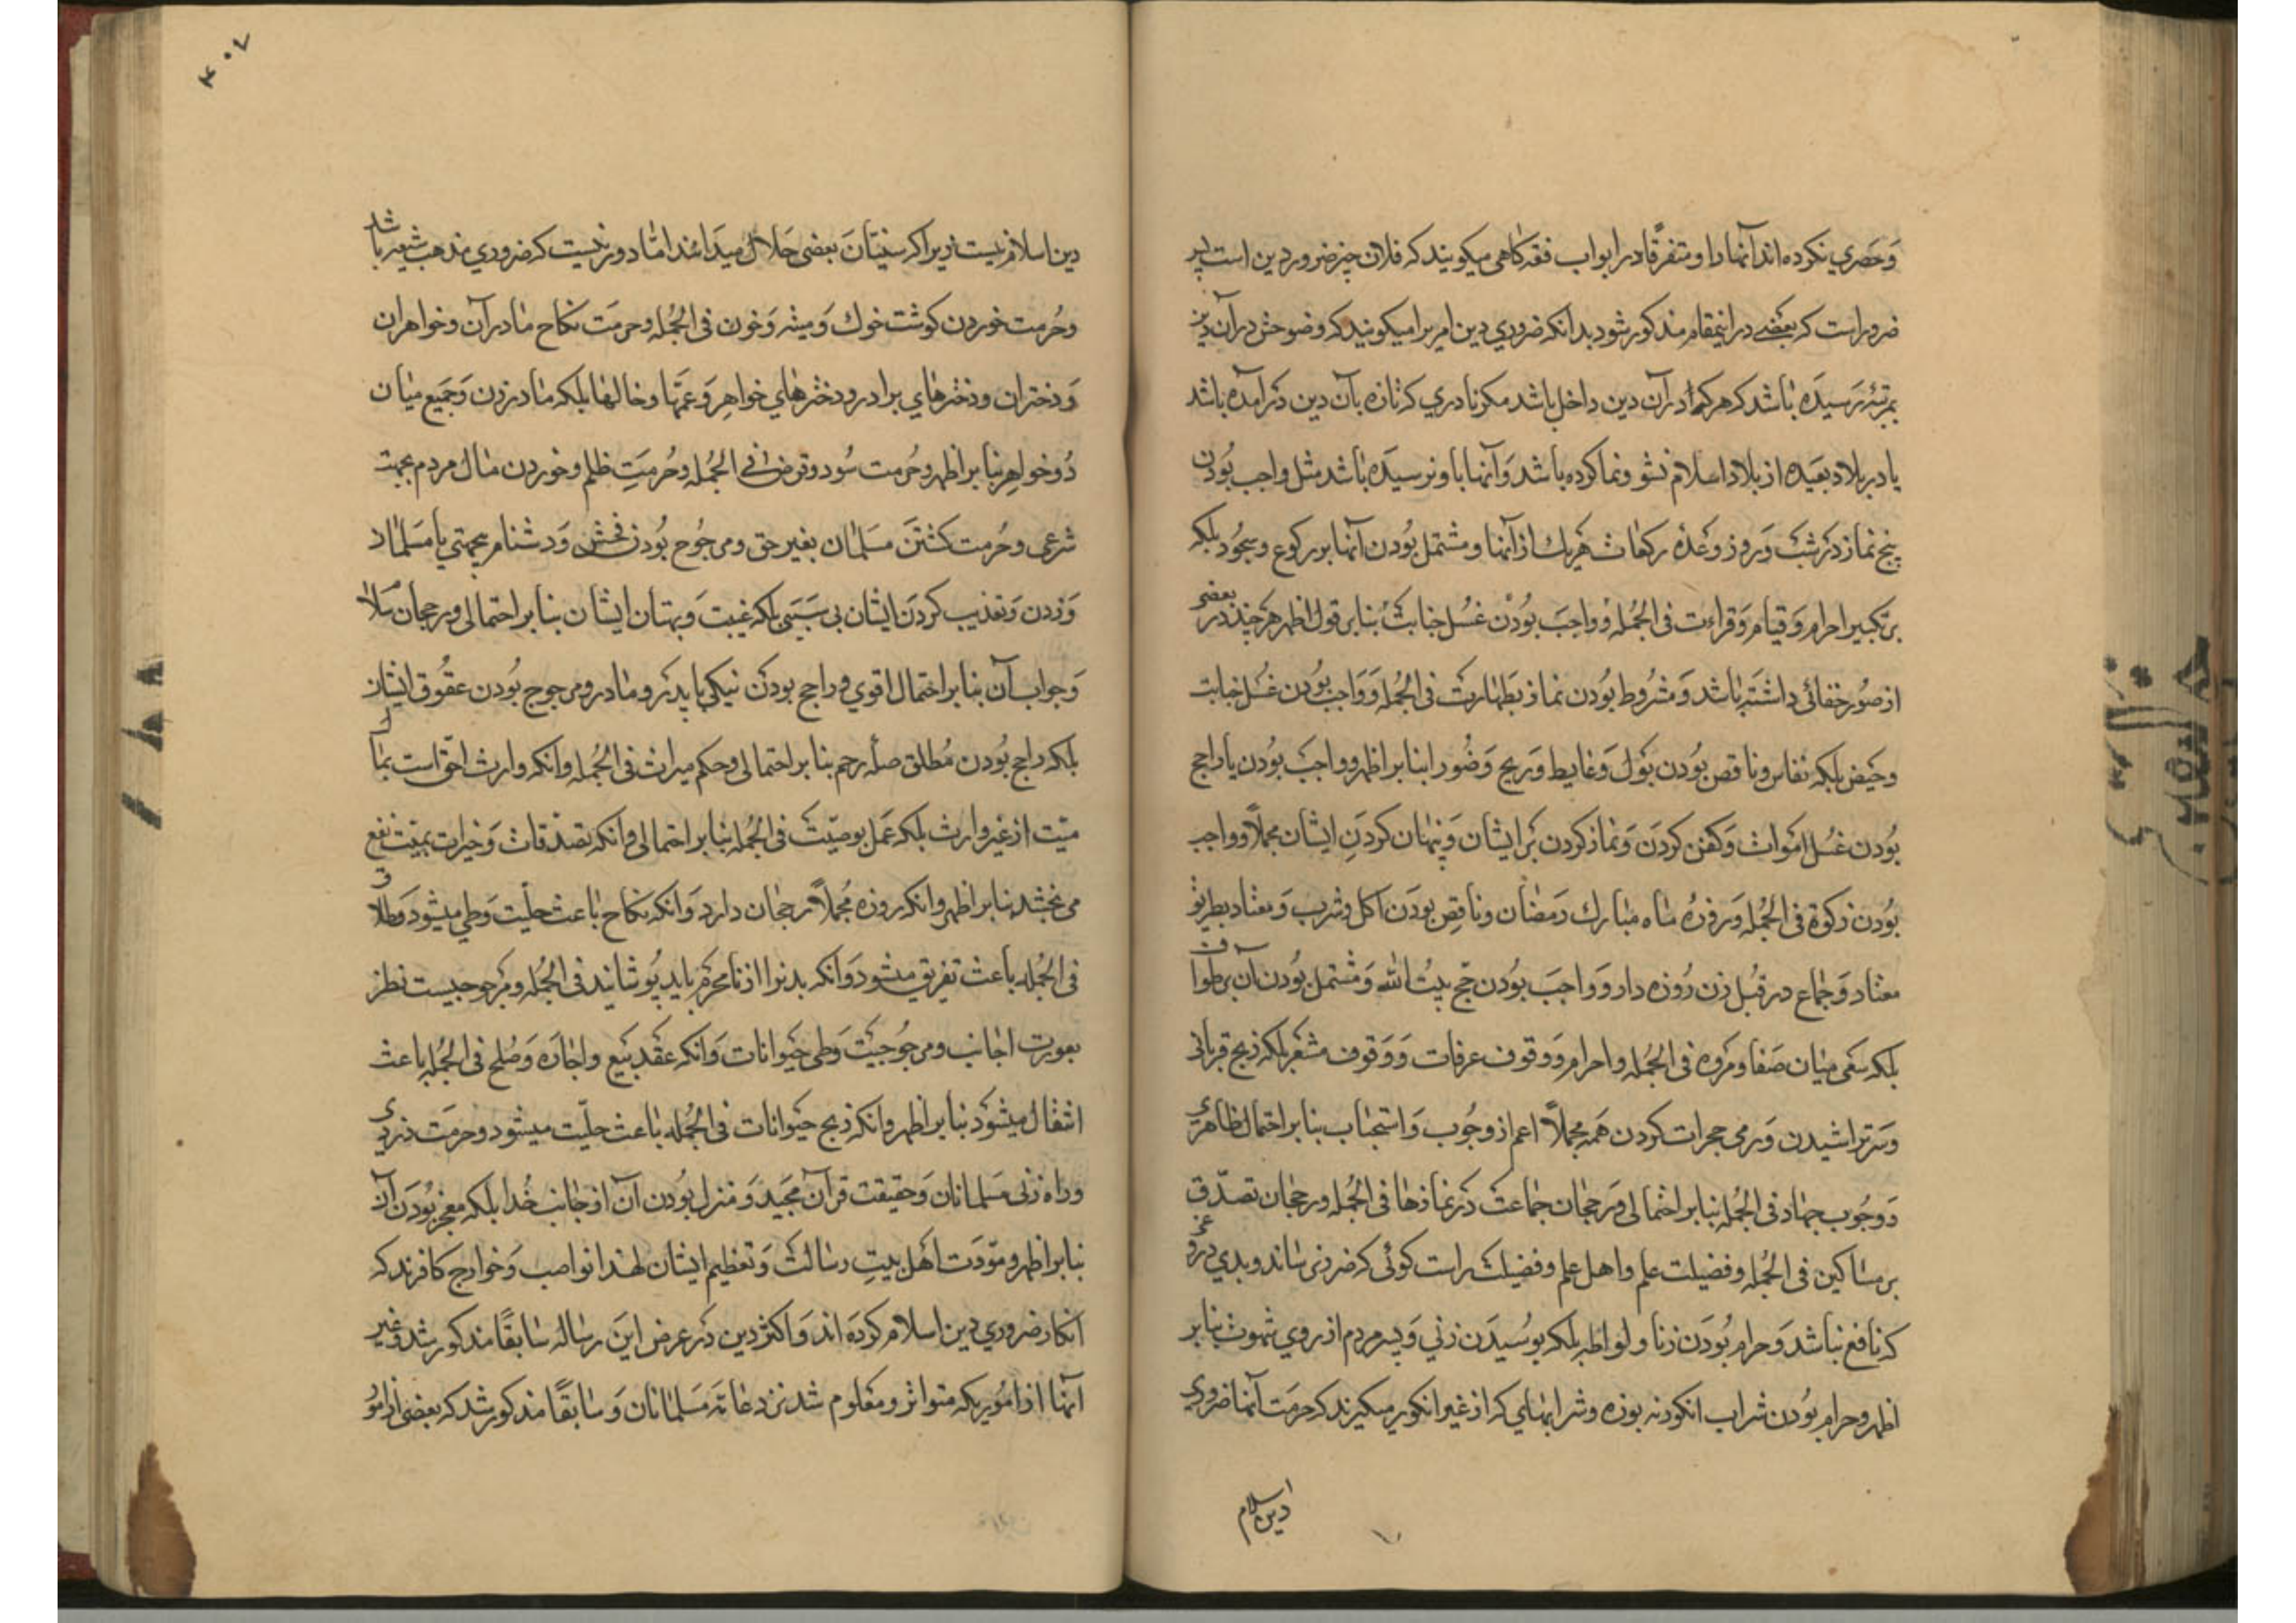 وحصری نکرده اند آنها را و متفرقا در ابواب فقه کاهی میکویند که فلان چیز ضرور دین است پس
ضرور است که بعضی در اینمقام مذکور شود بدانکه ضروری دین امریرا میکویند که وضوحش در آن دین
بمرتبه رسیده باشد که هرکه در آن دین داخل باشد مکر نادری که تازه بآن دین درآمده باشد
یا در بلاد بعیده از بلاد اسلام نشو و نما کرده باشد و آنها باو نرسیده باشد مثل واجب بودن
پنج نماز در شب و روز و عدد رکعات هریک از آنها و مشتمل بودن آنها بر رکوع و سجود بلکه
بر تکبیر احرام و قیام و قراءت فی الجمله و واجب بودن غسل جنابت بنابر قول اظهر هرچند در بعضی
از صور خفائی داشته باشد و مشروط بودن نماز بطهارت فی الجمله و واجب بودن غسل جنابت
و حیض بلکه نفاس و ناقص بودن بول و غایط و ریح وضو را بنابر اظهر و واجب بودن یا راجح
بودن غسل اموات و کفن کردن و نماز کردن بر ایشان و پنهان کردن ایشان مجملاً و واجب
بودن زکوة فی الجمله و روزه ماه مبارک رمضان و ناقص بودن اکل و شرب و معتاد بطریق
معتاد و جماع در قبل زن روزه دار و واجب بودن حج بیت الله و مشتمل بودن آن بر طواف
بلکه سعی میان صفا و مروه فی الجمله و احرام و وقوف عرفات و وقوف مشعر بلکه ذبح قربانی
و سر تراشیدن و رمی جمرات کردن همه مجملاً اعم از وجوب و استحباب بنابر احتمال ظاهری
و وجوب جهاد فی الجمله بنابر احتمالی و رجحان جماعت در نمازها فی الجمله و رجحان تصدق
بر مساکین فی الجمله و فضیلت علم و اهل علم و فضیلت راست کوئی که ضرر نرساند و بدی دروغ
که نافع نباشد و حرام بودن زنا و لواطه بلکه بوسیدن زنی و پسر مردم از روی شهوت بنابر
اظهر و حرام بودن شراب انکور نه بوزه و شرابهایی که از غیر انکور میکیرند که حرمت آنها ضروری
دین اسلام
۴۰۷
دین اسلام نیست زیرا که سنیان بعضی حلال میدانند اما دور نیست که ضروری مذهب شیعه باشد
و حرمت خوردن کوشت خوك و میته و خون فی الجمله و حرمت نکاح مادران و خواهران
و دختران و دخترهای برادر و دخترهای خواهر و عمها و خالها بلکه مادر زن و جمیع میان
دو خواهر بنابر اظهر و حرمت سود و قرض فی الجمله و حرمت ظلم و خوردن مال مردم بجهت
شرعی و حرمت کشتن مسلمان بغیر حق و مرجوح بودن فحش و دشنام بجهتی با مسلمانان
و زدن و تعذیب کردن ایشان بی سببی بلکه غیبت و بهتان ایشان بنابر احتمالی و رجحان سلام
و جواب آن بنابر احتمال اقوی و راجح بودن نیکی با پدر و مادر و مرجوح بودن عقوق ایشان
بلکه راجح بودن مطلق صله رحم بنابر احتمالی و حکم میراث فی الجمله و آنکه وارث احق است بمال
میت از غیر وارث بلکه عمل بوصیت فی الجمله بنابر احتمالی و آنکه تصدقات و خیرات بمیت نفع
می بخشد بنابر اظهر و آنکه روزه مجملاً رجحان دارد و آنکه نکاح باعث حلیت وطی میشود و طلاق
فی الجمله باعث تفریق میشود و آنکه بدنرا از نامحرم باید پوشانید فی الجمله و مرجوحیت نظر
بعورت اجانب و مرجوحیت وطی حیوانات و آنکه عقد بیع و اجاره و صلح فی الجمله باعث
انتقال میشود بنابر اظهر و آنکه ذبح حیوانات فی الجمله باعث حلیت میشود و حرمت دزدی
و راه زنی مسلمانان و حقیقت قرآن مجید و منزل بودن آن از جانب خدا بلکه معجز بودن آن
بنابر اظهر و مودت اهل بیت رسالت و تعظیم ایشان لهذا نواصب و خوارج کافرند که
انکار ضروری دین اسلام کرده اند و اکثر دین در عرض این رساله سابقاً مذکور شد و غیر
آنها از اموریکه متواتر و معلوم شد نزد عامه مسلمانان و سابقاً مذکور شد که بعضی از امور